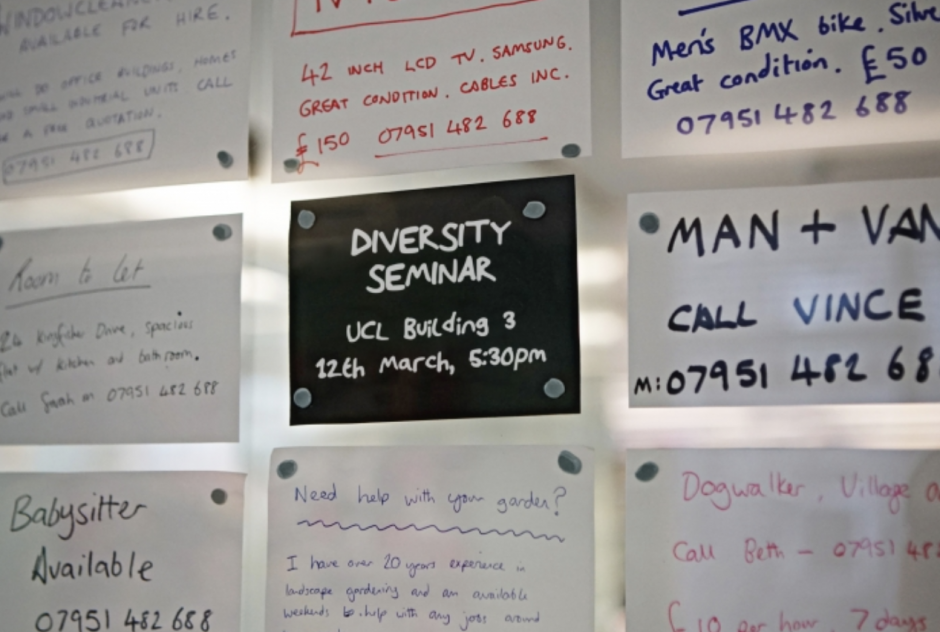 WINDOWCLEANER
AVAILABLE FOR HIRE.
WILL DO OFFICE BUILDINGS, HOMES
AND SMALL INDUSTRIAL UNITS. CALL
FOR A FREE QUOTATION.
07951 482 688
42 INCH LCD TV. SAMSUNG.
GREAT CONDITION. CABLES INC.
£150 07951 482 688
Men's BMX bike. Silve
Great condition. £50
07951 482 688
Room to let
24 Kingfisher Drive, spacious
flat w/ kitchen and bathroom.
Call Sarah on 07951 482 688
DIVERSITY
SEMINAR
UCL Building 3
12th March, 5:30pm
MAN + VAN
CALL VINCE
M:07951 482 68
Babysitter
Available
07951 482 688
Need help with your garden?
I have over 20 years experience in
landscape gardening and am available
weekends to help with any jobs around
Dogwalker, Village a
Call Beth - 07951 48
£10 per hour, 7 days